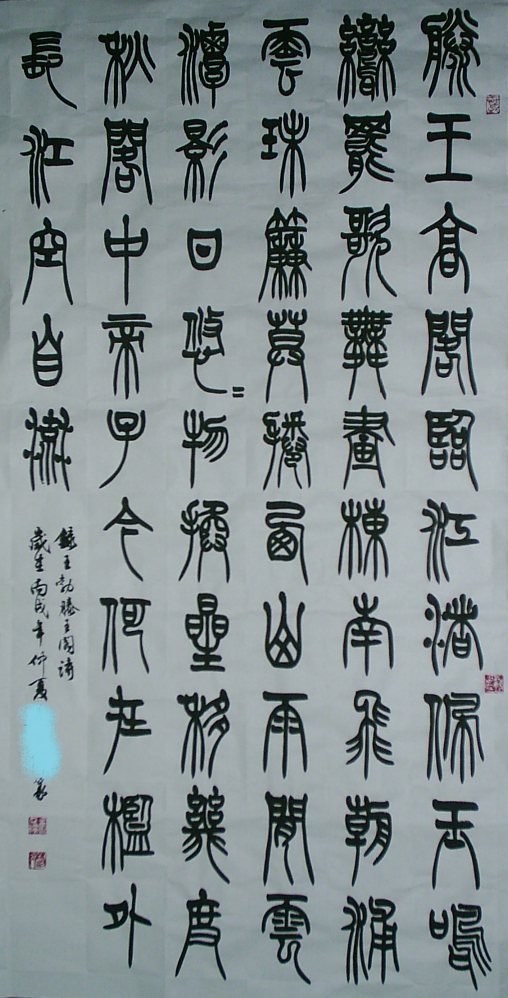 滕王高閣臨江渚佩玉鳴
鸞罷歌舞畫棟南飛朝浦
雲珠簾莫捲西山雨閒雲
潭影日悠〻物換星移幾度
秋閣中帝子今何在檻外
長江空自流
錄王勃滕王閣詩
歲在丙戌年仲夏
篆